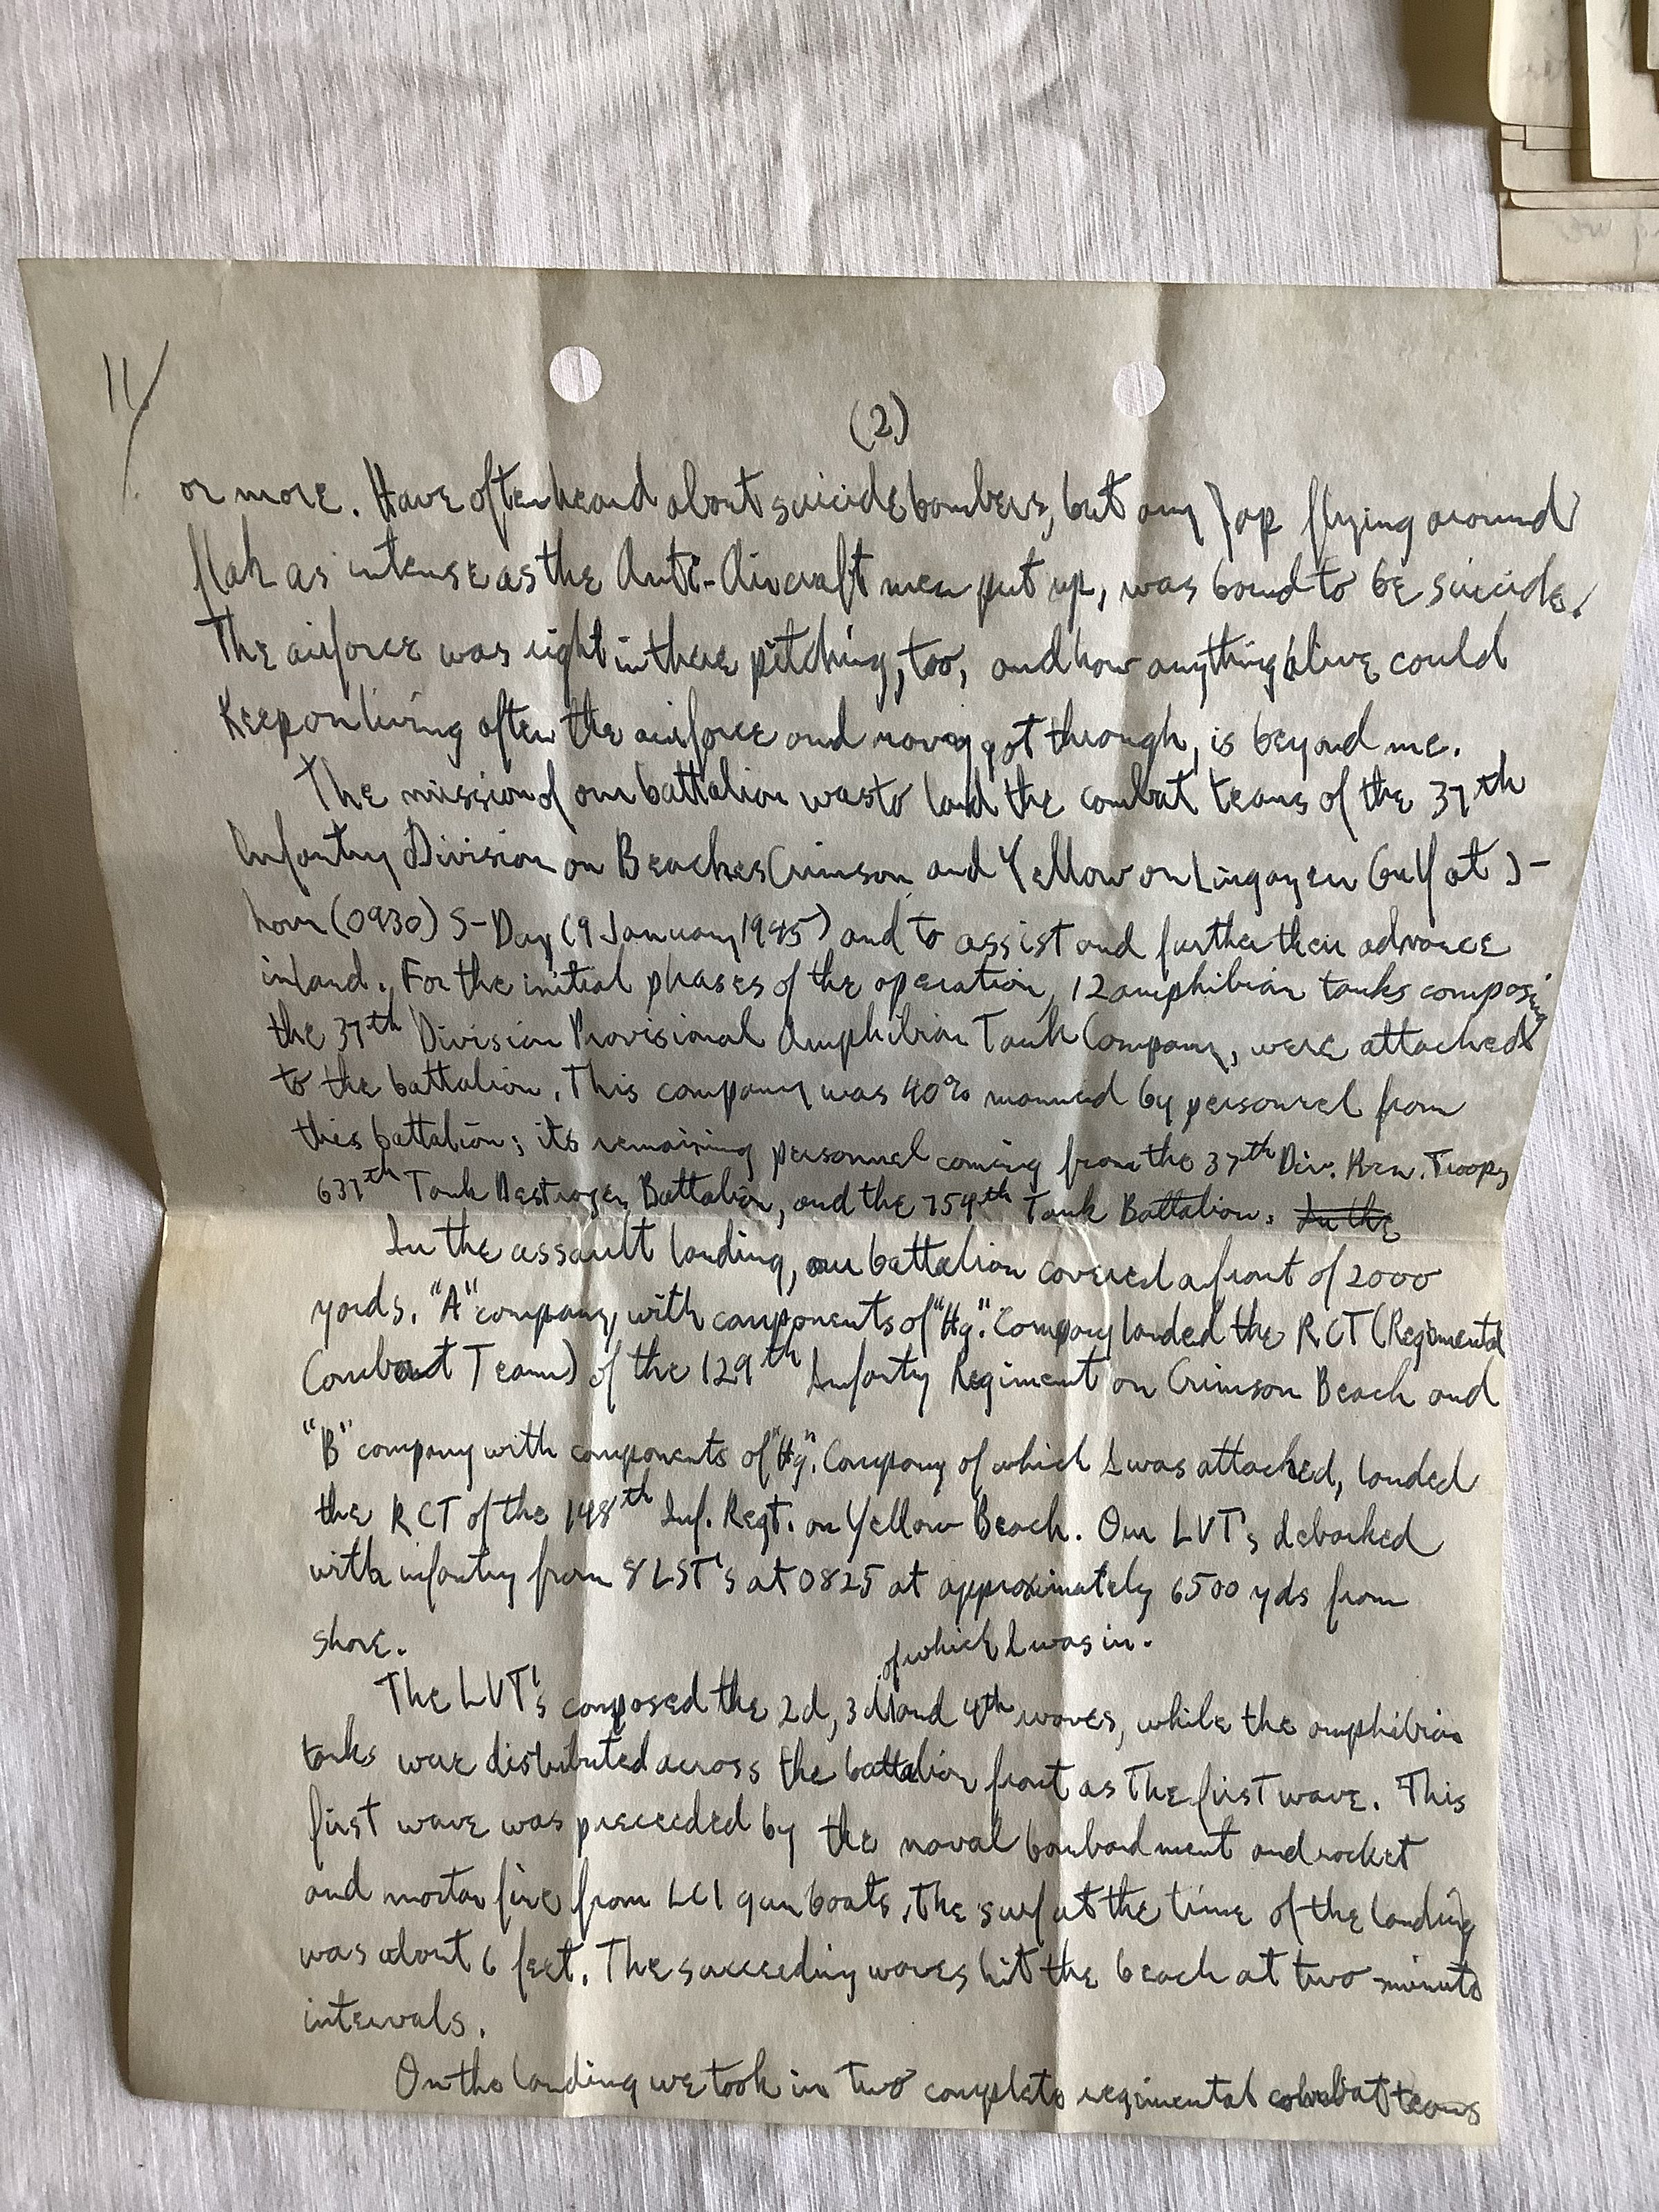 11/
(2)
or more. Have often heard about suicide bombers, but any Jap flying around
flak as intense as the Anti-Aircraft men put up, was bound to be suicide.
The airforce was right in there pitching, too, and how anything alive could
keep on living after the airforce and navy got through, is beyond me.
The mission of our battalion was to land the combat teams of the 37th
Infantry Division on Beaches Crimson and Yellow on Lingayen Gulf at J-
hour (0930) S-Day (9 January 1945) and to assist and further their advance
inland. For the initial phases of the operation, 12 amphibian tanks composing
the 37th Division Provisional Amphibian Tank Company, were attached
to the battalion. This company was 40% manned by personnel from
this battalion; its remaining personnel coming from the 37th Div. Rcn. Troop,
637th Tank Destroyer Battalion, and the 754th Tank Battalion. In the
In the assault landing, our battalion covered a front of 2000
yards. "A" company, with components of "Hq". Company landed the RCT (Regimental
Combat Team) of the 129th Infantry Regiment on Crimson Beach and
"B" company with components of "Hq". Company of which I was attached, landed
the RCT of the 148th Inf. Regt. on Yellow Beach. Our LVT's debarked
with infantry from 8 LST's at 0825 at approximately 6500 yds from
shore.
of which I was in.
The LVT's composed the 2d, 3d and 4th waves, while the amphibian
tanks were distributed across the battalion front as the first wave. This
first wave was preceeded by the naval bombardment and rocket
and mortar fire from LCI gun boats. The surf at the time of the landing
was about 6 feet. The succeeding waves hit the beach at two minute
intervals.
On the landing we took in two complete regimental combat teams